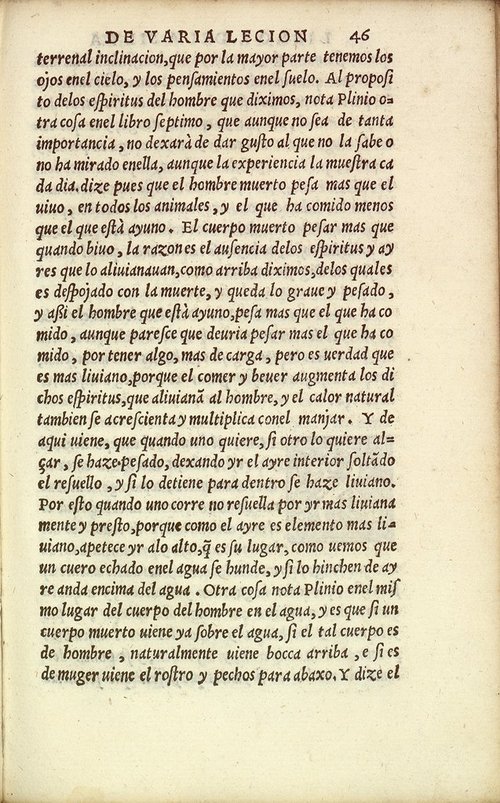 DE VARIA LECION 46
terrenal inclinacion, que por la mayor parte tenemos los
ojos enel cielo, y los pensamientos enel suelo. Al proposi
to delos eſpiritus del hombre que diximos, nota Plinio o=
tra cosa enel libro septimo, que aunque no sea de tanta
importancia, no dexarà de dar gusto al que no la sabe o
no ha mirado enella, aunque la experiencia la muestra ca
da dia. dize pues que el hombre muerto pesa mas que el
uiuo, en todos los animales, y el que ha comido menos
que el que està ayuno. El cuerpo muerto pesar mas que
quando biuo, la razon es el ausencia delos eſpiritus y ay
res que lo aliuianauan, como arriba diximos, delos quales
es deſpojado con la muerte, y queda lo graue y pesado,
y aſsi el hombre que està ayuno, pesa mas que el que ha co
mido, aunque paresce que deuria pesar mas el que ha co
mido, por tener algo, mas de carga, pero es uerdad que
es mas liuiano, porque el comer y beuer augmenta los di
chos eſpiritus, que aliuianã al hombre, y el calor natural
tambien se acrescienta y multiplica conel manjar. Y de
aqui uiene, que quando uno quiere, si otro lo quiere al=
çar, se haze pesado, dexando yr el ayre interior soltãdo
el resuello, y si lo detiene para dentro se haze liuiano.
Por esto quando uno corre no resuella por yr mas liuiana
mente y presto, porque como el ayre es elemento mas li=
uiano, apetece yr alo alto, q̃ es su lugar, como uemos que
un cuero echado enel agua se hunde, y si lo hinchen de ay
re anda encima del agua. Otra cosa nota Plinio enel mis
mo lugar del cuerpo del hombre en el agua, y es que si un
cuerpo muerto uiene ya sobre el agua, si el tal cuerpo es
de hombre, naturalmente uiene bocca arriba, e si es
de muger uiene el rostro y pechos para abaxo. Y dize el